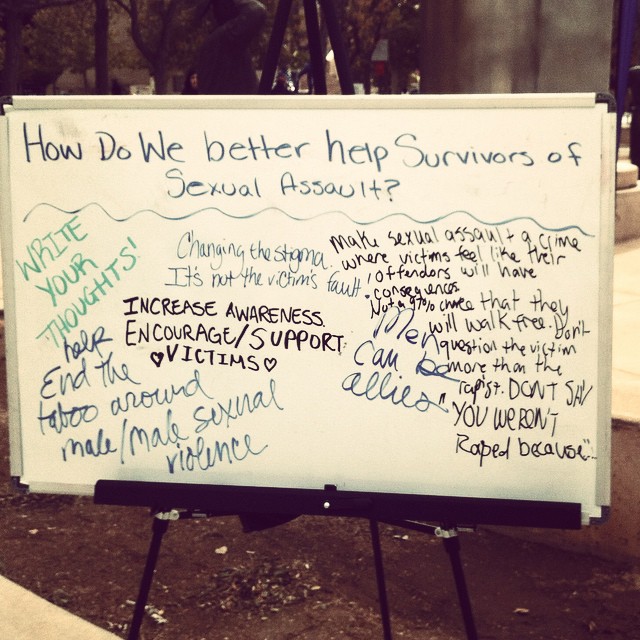 How Do We better help Survivors of
Sexual Assault?
WRITE
YOUR
THOUGHTS!
Changing the stigma.
It's not the victim's fault.
INCREASE AWARENESS
ENCOURAGE/SUPPORT
♡VICTIMS♡
help
End the
taboo around
male/male sexual
violence
Make sexual assault a crime
where victims feel like their
offenders will have
consequences.
Not a 97% chance that they
will walk free. Don't
question the victim
more than the
rapist. DON'T SAY
"YOU WEREN'T
Raped because"...
Men
Can be
allies